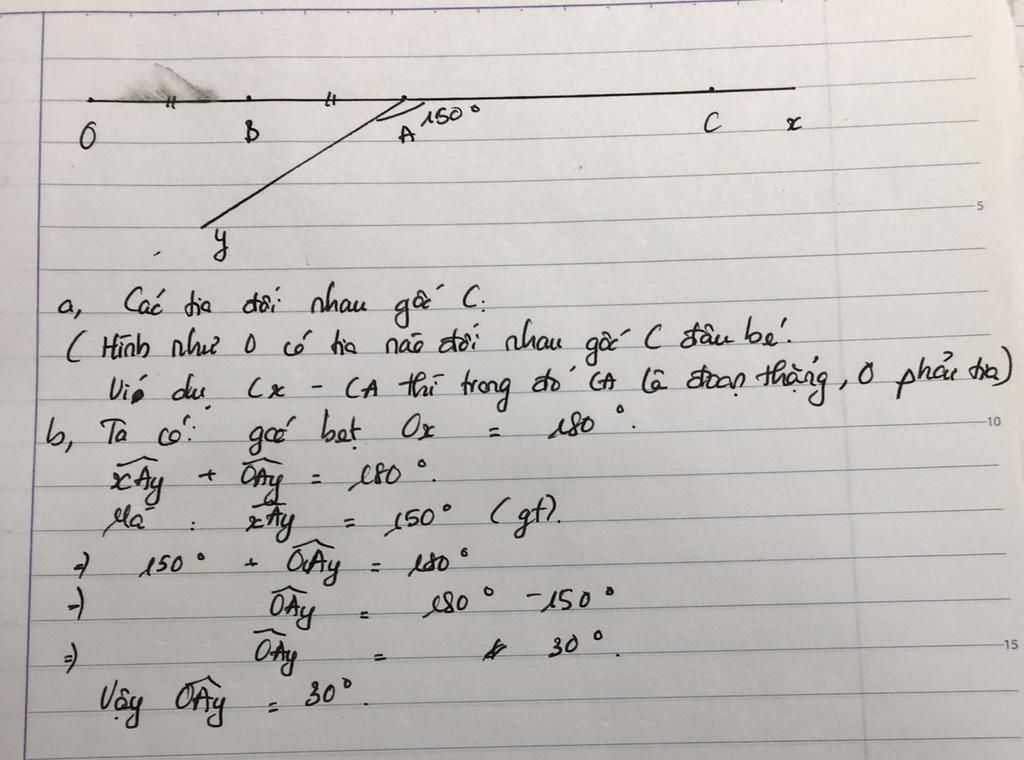 O B A 150° C x
y
5
a, Các tia đối nhau gốc C:
( Hình như 0 có tia nào đối nhau gốc C đâu bé.
Ví dụ Cx - CA thì trong đó CA là đoạn thẳng, 0 phải tia)
b, Ta có: góc bẹt Ox = 180°.
10
xAy + OAy = 180°.
Mà : xAy = 150° (gt).
=) 150° + OAy = 180°
=) OAy = 180° - 150°
=) OAy = 30°.
15
Vậy OAy = 30°.